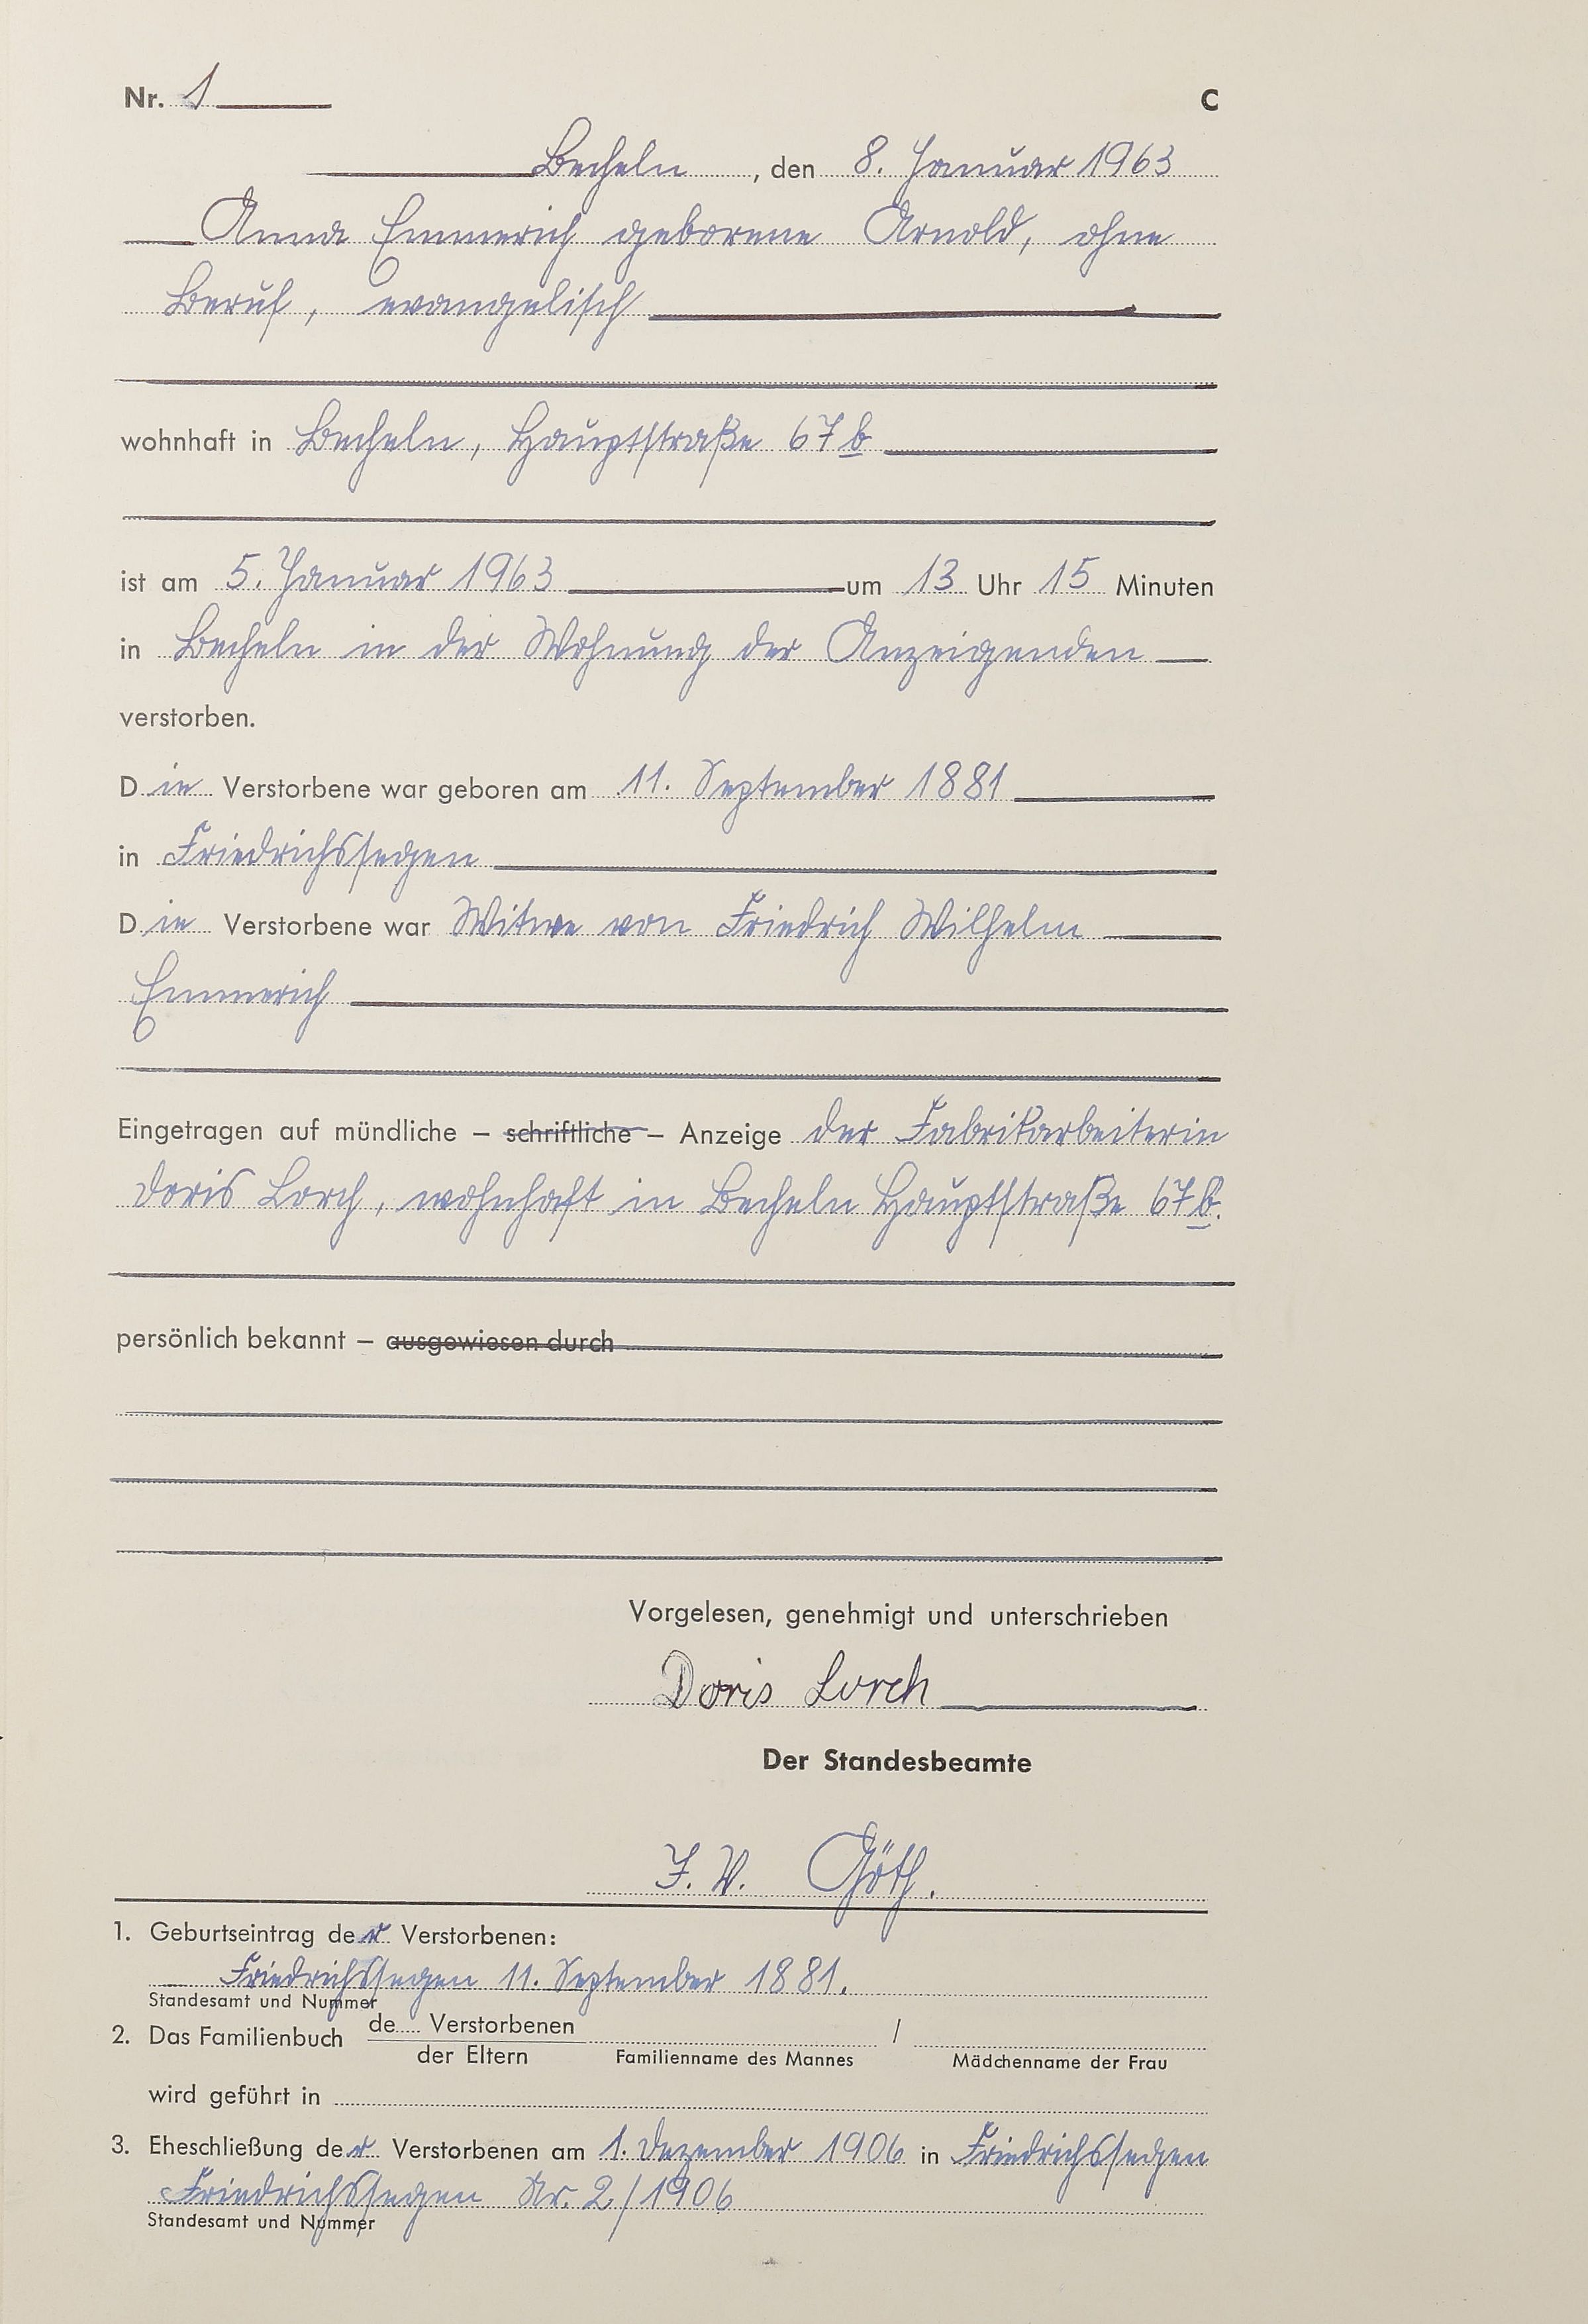 Nr. 1 C
Becheln, den 8. Januar 1963
Anna Emmerich geborene Arnold, ohne
Beruf, evangelisch
wohnhaft in Becheln, Hauptstraße 67b
ist am 5. Januar 1963 um 13 Uhr 15 Minuten
in Becheln in der Wohnung der Anzeigenden
verstorben.
Die Verstorbene war geboren am 11. September 1881
in Friedrichssegen
Die Verstorbene war Witwe von Friedrich Wilhelm
Emmerich
Eingetragen auf mündliche – schriftliche – Anzeige der Fabrikarbeiterin
Doris Lorch, wohnhaft in Becheln Hauptstraße 67b.
persönlich bekannt – ausgewiesen durch
Vorgelesen, genehmigt und unterschrieben
Doris Lorch
Der Standesbeamte
I. V. Göth.
1. Geburtseintrag der Verstorbenen:
Friedrichssegen 11. September 1881.
Standesamt und Nummer
2. Das Familienbuch de.... Verstorbenen /
der Eltern Familienname des Mannes Mädchenname der Frau
wird geführt in
3. Eheschließung der Verstorbenen am 1. Dezember 1906 in Friedrichssegen
Friedrichssegen Nr. 2/1906
Standesamt und Nummer